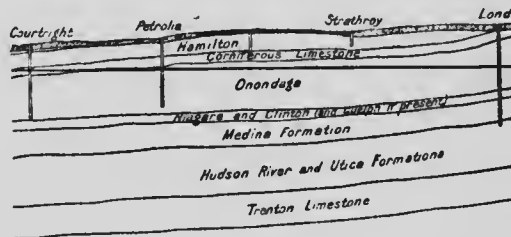 Courtright Petrolia Strathroy Lond
Hamilton
Corniferous Limestone
Onondaga
Niagara and Clinton (and Guelph if present)
Medina Formation
Hudson River and Utica Formations
Trenton Limestone